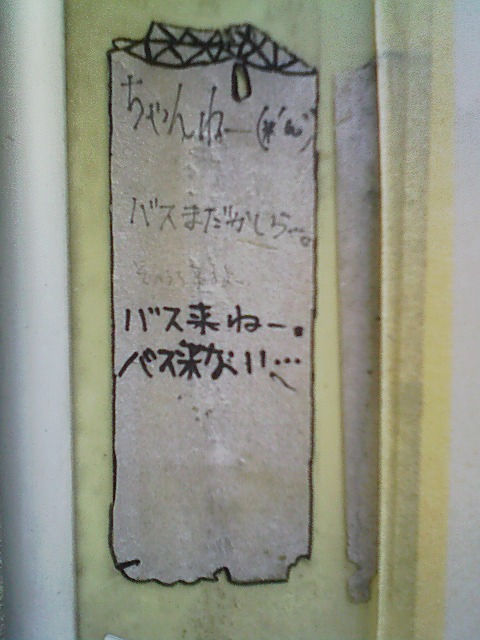 ちゃんねー(*´ω`)
バスまだかしらー。
そのうち来るよ。
バス来ねー。
バス来ない…